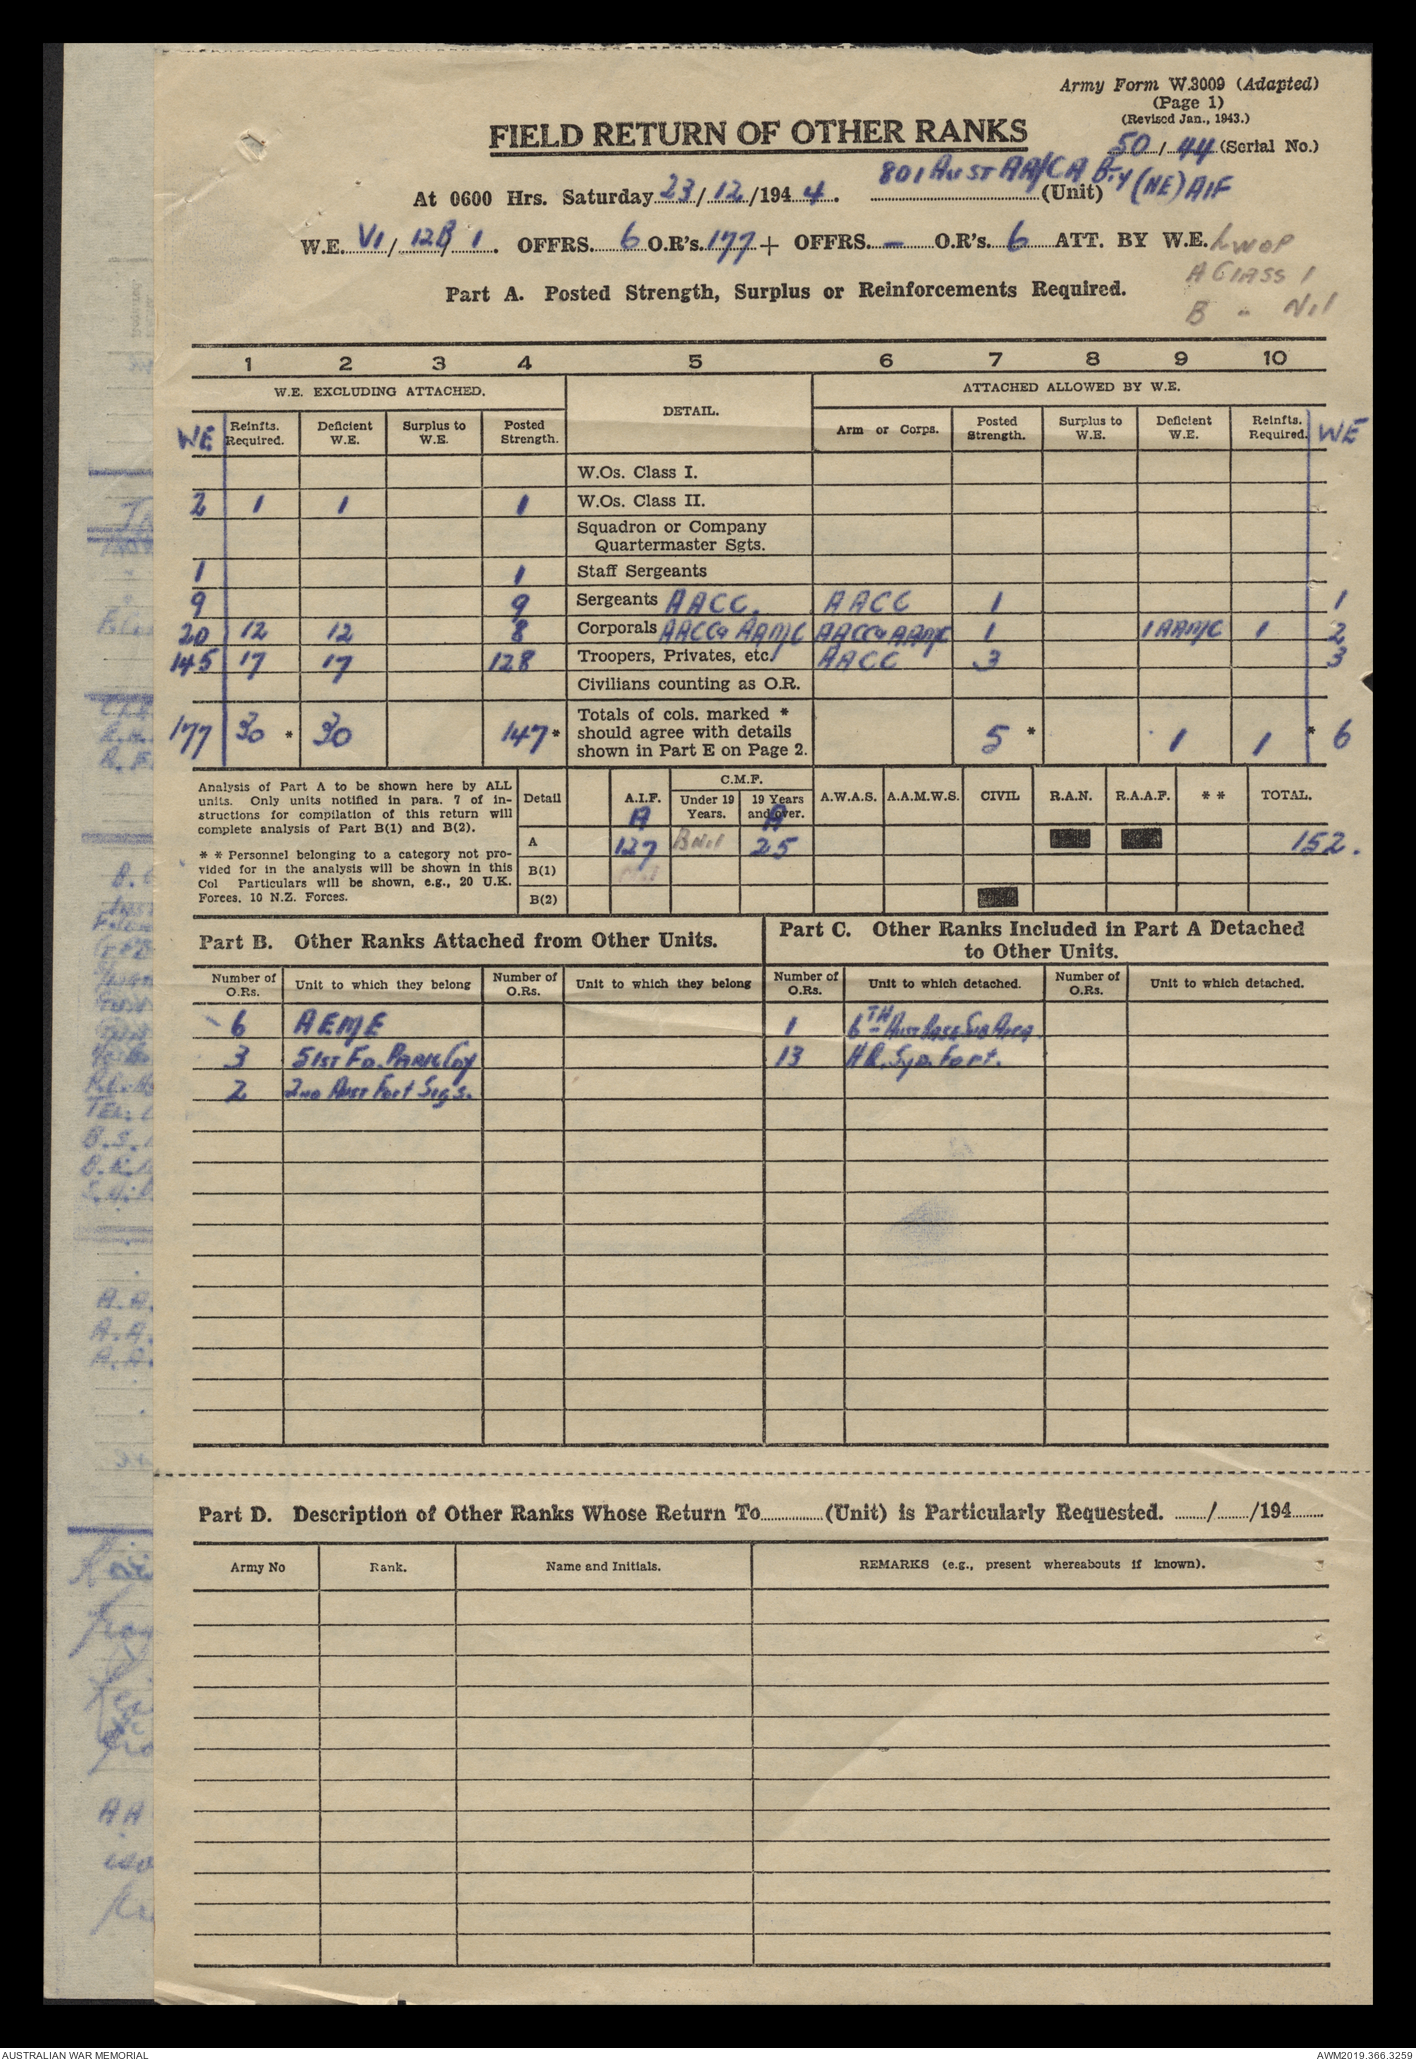 Army Form W.3009 (Adapted)
(Page 1)
(Revised Jan., 1943.)
FIELD RETURN OF OTHER RANKS
50/44 (Serial No.)
At 0600 Hrs. Saturday 23/12/1944. 801 Aust AA/CA Bty (NE) AIF (Unit)
W.E. VI/12B/1. OFFRS. 6 O.R's. 177 + OFFRS. - O.R's. 6 ATT. BY W.E. LWOP
A Class 1
B " Nil
Part A. Posted Strength, Surplus or Reinforcements Required.
1 2 3 4 5 6 7 8 9 10
W.E. EXCLUDING ATTACHED. DETAIL. ATTACHED ALLOWED BY W.E.
WE Reinfts. Required. Deficient W.E. Surplus to W.E. Posted Strength. Arm or Corps. Posted Strength. Surplus to W.E. Deficient W.E. Reinfts. Required. WE
W.Os. Class I.
2 1 1 1 W.Os. Class II.
Squadron or Company
Quartermaster Sgts.
1 1 Staff Sergeants
9 9 Sergeants AACC. AACC 1 1
20 12 12 8 Corporals AACC & AAMC AACC & AAMC 1 1 AAMC 1 2
145 17 17 128 Troopers, Privates, etc. AACC 3 3
Civilians counting as O.R.
177 30 * 30 147 * Totals of cols. marked * should agree with details shown in Part E on Page 2. 5 * 1 1 * 6
Analysis of Part A to be shown here by ALL
units. Only units notified in para. 7 of in-
structions for compilation of this return will
complete analysis of Part B(1) and B(2).
* * Personnel belonging to a category not pro-
vided for in the analysis will be shown in this
Col Particulars will be shown, e.g., 20 U.K.
Forces, 10 N.Z. Forces.
Detail A.I.F. C.M.F. Under 19 Years. 19 Years and over. A.W.A.S. A.A.M.W.S. CIVIL R.A.N. R.A.A.F. * * TOTAL.
A A
A 127 B Nil 25 152.
B(1)
B(2)
Part B. Other Ranks Attached from Other Units.
Part C. Other Ranks Included in Part A Detached
to Other Units.
Number of O.Rs. Unit to which they belong Number of O.Rs. Unit to which they belong Number of O.Rs. Unit to which detached. Number of O.Rs. Unit to which detached.
6 AEME 1 6TH Aust Base Sub Area.
3 51st Fd. Park Coy 13 HQ. Syd. Fort.
2 2nd Aust Fort Sigs.
Part D. Description of Other Ranks Whose Return To (Unit) is Particularly Requested. / /194
Army No Rank. Name and Initials. REMARKS (e.g., present whereabouts if known).
AUSTRALIAN WAR MEMORIAL AWM2019.366.3259